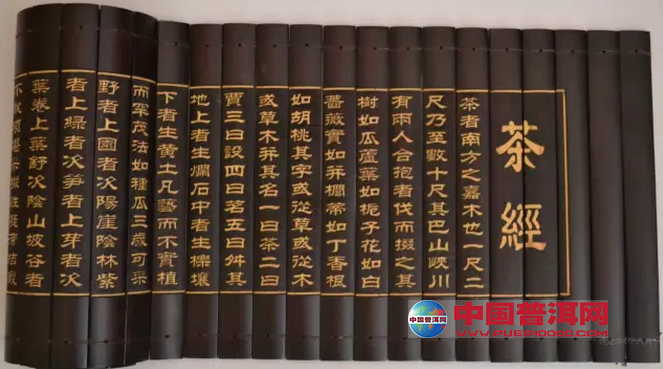 茶經
茶者南方之嘉木也一尺二
尺乃至數十尺其巴山峽川
有雨人合抱者伐而掇之其
樹如瓜蘆葉如梔子花如白
薔薇實如并櫚蒂如丁香根
如胡桃其字或從草或從木
或草木并其名一曰茶二曰
賈三曰設四曰茗五曰舛其
地上者生爛石中者生櫟壤
下者生黄土凡藝而不實植
而罕茂法如種瓜三歲可采
野者上園者次陽崖陰林紫
者上綠者次笋者上芽者次
葉卷上葉舒次陰山坡谷者
中国普洱网